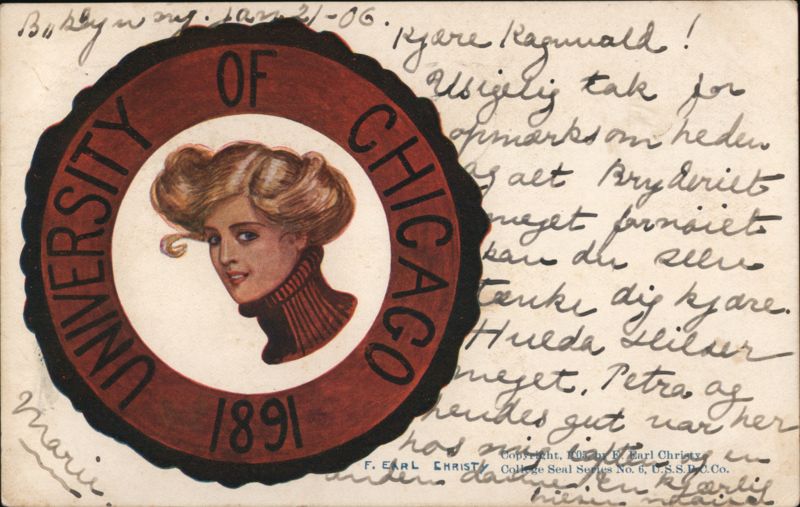 Bklyn ny. Jan 21-06.
Kjære Ragnvald!
Usigelig tak for
opmærksomheden
og alt Bryderiet
meget fornøiet
kan du selv
tænke dig kjære.
Hulda Hilser
meget. Petra og
hendes gut var her
hos
anden dame. En kjærlig
hilsen
Marie
UNIVERSITY OF CHICAGO
1891
F. EARL CHRISTY
Copyright, 1905, by F. Earl Christy
College Seal Series No. 6, U.S.S.P.C.Co.